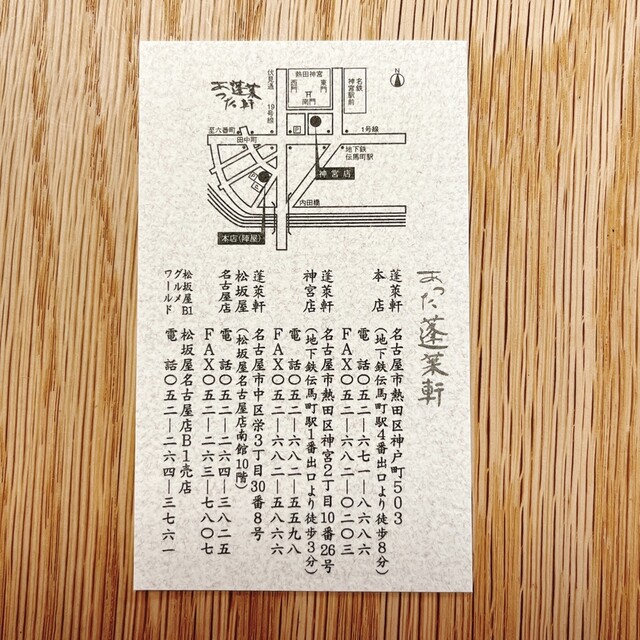 熱田神宮
西門
東門
南門
伏見通
19号線
名鉄
神宮駅前
N
あつた
蓬莱軒
至六番町
田中町
P
1号線
地下鉄
伝馬町駅
神宮店
P
内田橋
本店(陣屋)
あつた蓬莱軒
蓬莱軒
本店
名古屋市熱田区神戸町503
(地下鉄伝馬町駅4番出口より徒歩8分)
電話〇五二―六七一―八六八六
FAX〇五二―六八二―〇二〇三
蓬莱軒
神宮店
名古屋市熱田区神宮2丁目10番26号
(地下鉄伝馬町駅1番出口より徒歩3分)
電話〇五二―六八二―五五九八
FAX〇五二―六八二―五八六六
蓬莱軒
松坂屋
名古屋店
名古屋市中区栄3丁目30番8号
(松坂屋名古屋店南館10階)
電話〇五二―二六四―三八二五
FAX〇五二―二六三―七八〇七
松坂屋B1
グルメ
ワールド
松坂屋名古屋店B1売店
電話〇五二―二六四―三七六一